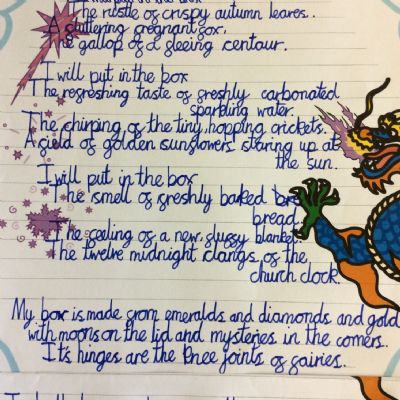 I will put in the box
The rustle of crispy autumn leaves.
A gluttering pregnant fox,
The gallop of a fleeing centaur.
I will put in the box
The refreshing taste of freshly carbonated
sparkling water.
The chirping of the tiny hopping crickets.
A field of golden sunflowers staring up at
the sun.
I will put in the box
The smell of freshly baked bre
bread.
The feeling of a new fluffy blanket.
The twelve midnight clangs of the
church clock.
My box is made from emeralds and diamonds and gold
with moons on the lid and mysteries in the corners.
It's hinges are the knee joints of fairies.